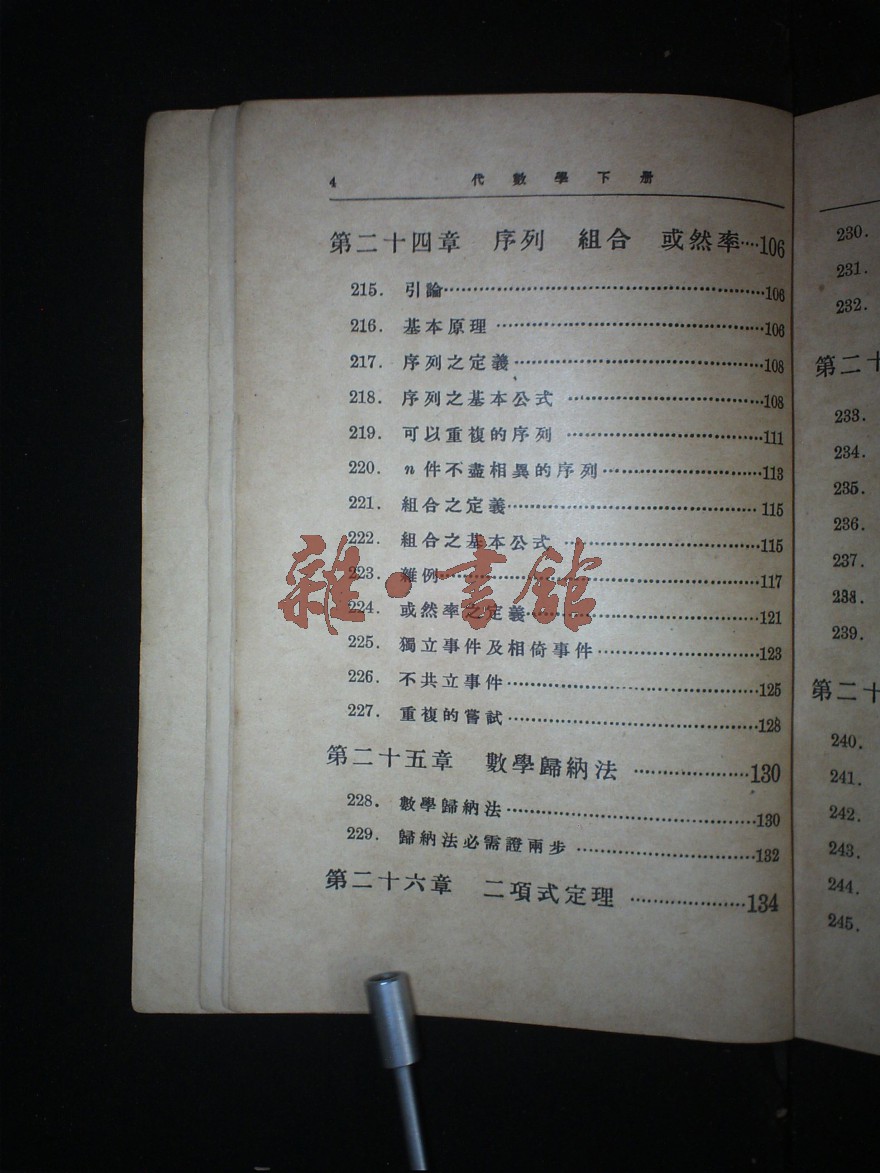 4 代數學下册
第二十四章 序列 組合 或然率····106
215. 引論················106
216. 基本原理················106
217. 序列之定義················108
218. 序列之基本公式················108
219. 可以重複的序列················111
220. n件不盡相異的序列················113
221. 組合之定義················115
222. 組合之基本公式················115
223. 雜例················117
224. 或然率之定義················121
225. 獨立事件及相倚事件················123
226. 不共立事件················125
227. 重複的嘗試················128
第二十五章 數學歸納法················130
228. 數學歸納法················130
229. 歸納法必需證兩步················132
第二十六章 二項式定理················134
雜·書館
230.
231.
232.
第二十
233.
234.
235.
236.
237.
238.
239.
第二十
240.
241.
242.
243.
244.
245.